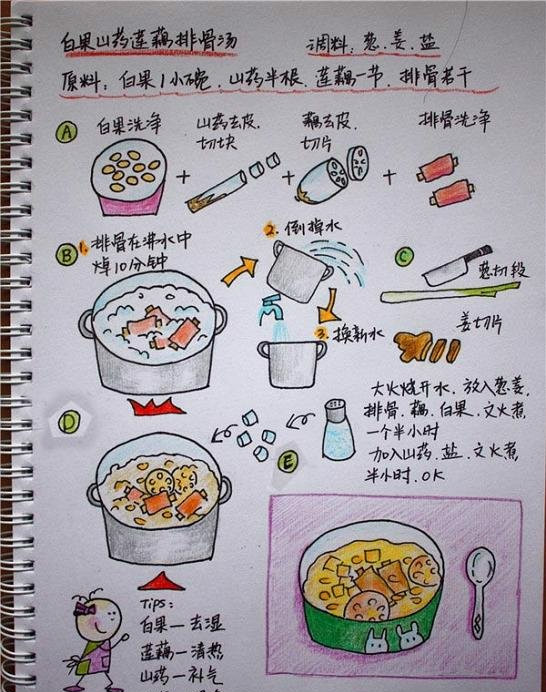 白果山药莲藕排骨汤 调料：葱、姜、盐
原料：白果1小碗、山药半根、莲藕一节、排骨若干
A
白果洗净
山药去皮、
切块
藕去皮、
切片
排骨洗净
B
1.排骨在沸水中
焯10分钟
2.倒掉水
3.换新水
C
葱切段
姜切片
大火烧开水，放入葱姜，
排骨、藕、白果，文火煮
一个半小时
加入山药、盐、文火煮
半小时，OK
D
E
Tips：
白果—去湿
莲藕—清热
山药—补气